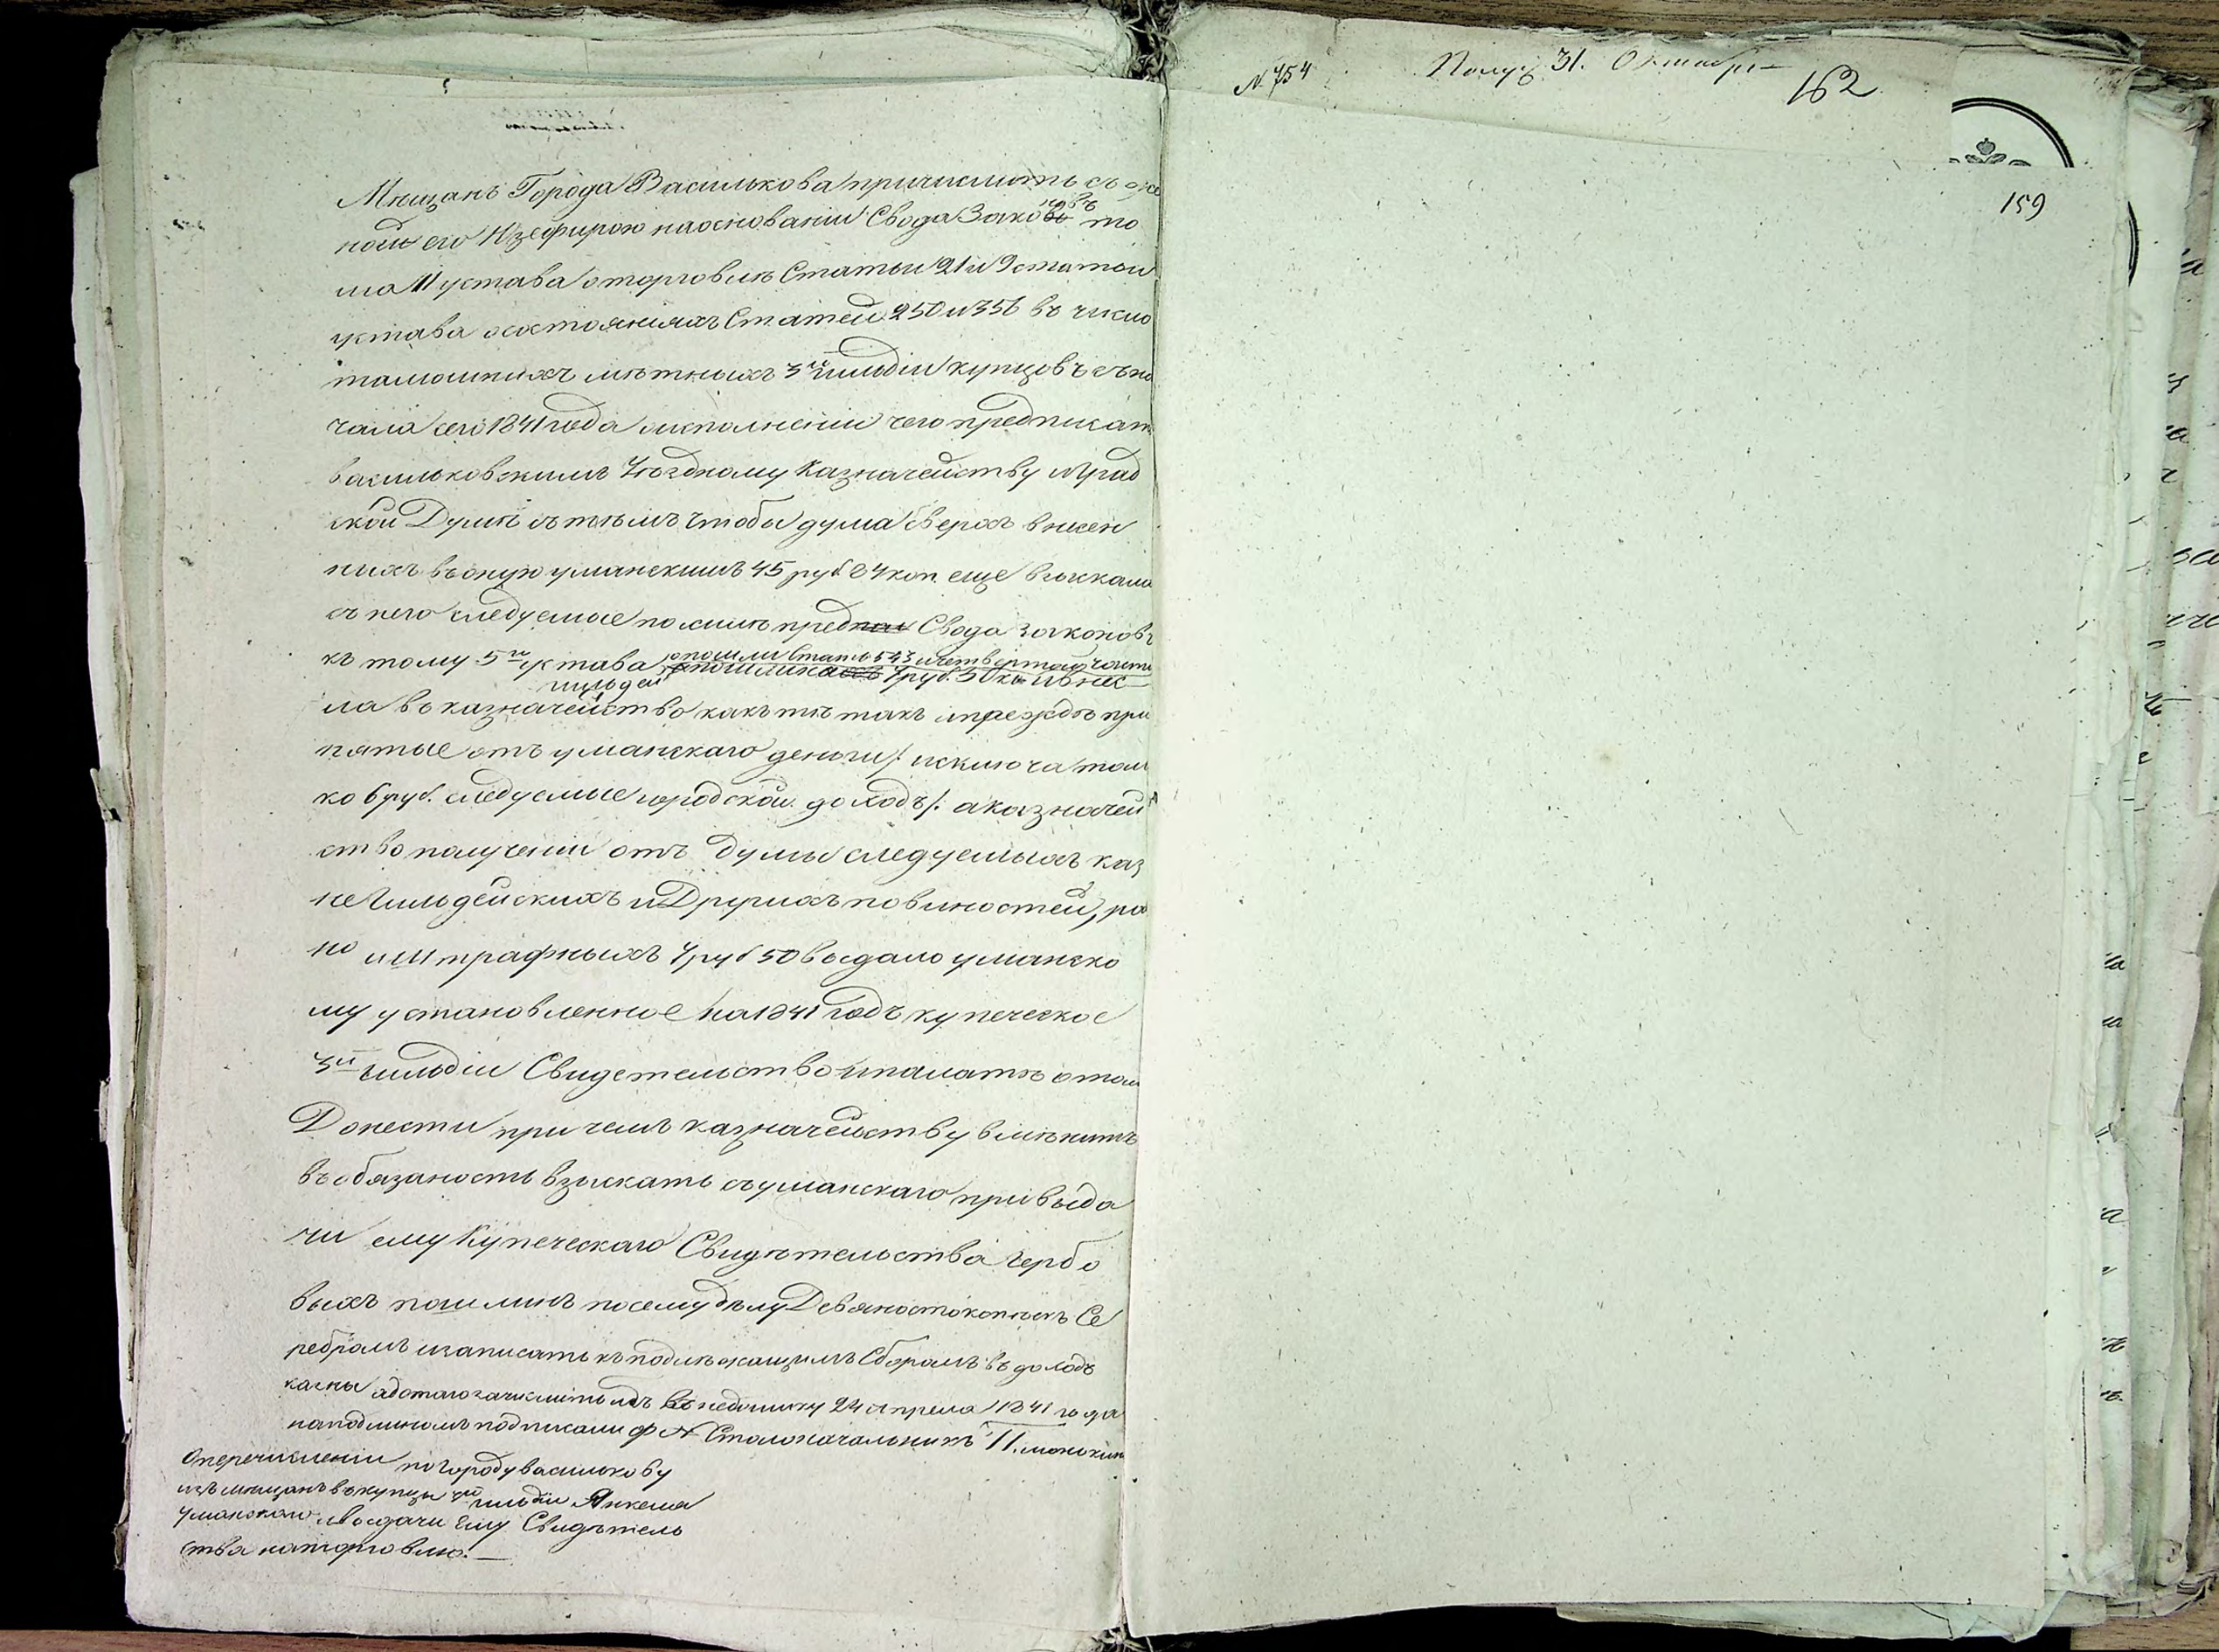 Мещанъ Города Василькова причислить съ же
ною его Юзефирою наосновании Свода Законовъ то
ма 11 устава оторговле Статьи 21 и 9 статьи
устава осостоянияхъ Статей 250 и 356 въ число
тамошнихъ 3й гильдіи купцовъ съ на
чала сего 1841 года оисполненіи чего предписать
васильковскимъ Уѣздному Казначейству и Град
ской Думѣ стѣмъ чтобы дума сверхъ внесен
нихъ въоную уманскимъ 45 руб 84 коп. еще взыскала
съ него следуемые посилѣ Свода законовъ
къ тому 5го устава опошли Стать 543 ичетвертой части
гильдей 4 руб. 50 к. ивнес
ла въ казначейство какъ тѣ такъ ипрежде при
нятые отъ уманскаго деньги/: исключа толь
ко 6 руб. следуемые городской доходъ/: аказначей
ство получении отъ думы следуемыхъ каз
не Гильдейскихъ и Другихъ повиностей, ра
но иштрафныхъ 4 руб 50 выдало уманско
му установленное на 1841 годъ купеческое
3й гильдіи Свидетельство ипалатѣ отом
Донести причемъ казначейству вмѣнить
въобязаность взыскать суманскаго привыда
чи ему Купеческаго Свидѣтельства гербо
выхъ пошлинъ посему делу Девяносто копѣекъ Се
ребромъ изаписать къ подлежащимъ Сборамъ въ доходъ
казны адотого зачислить ихъ въ недоимку 24 апреля 1841 года
наподлиномъ подписали Столоначальникъ
Оперечислении погороду василькову
изъ мещанъ въкупцы 3й гильдіи Янкеля
Уманскаго ивыдачи Ему Свидѣтель
ства наторговлю.
№ 754
Получ. 31. Октября
162
159